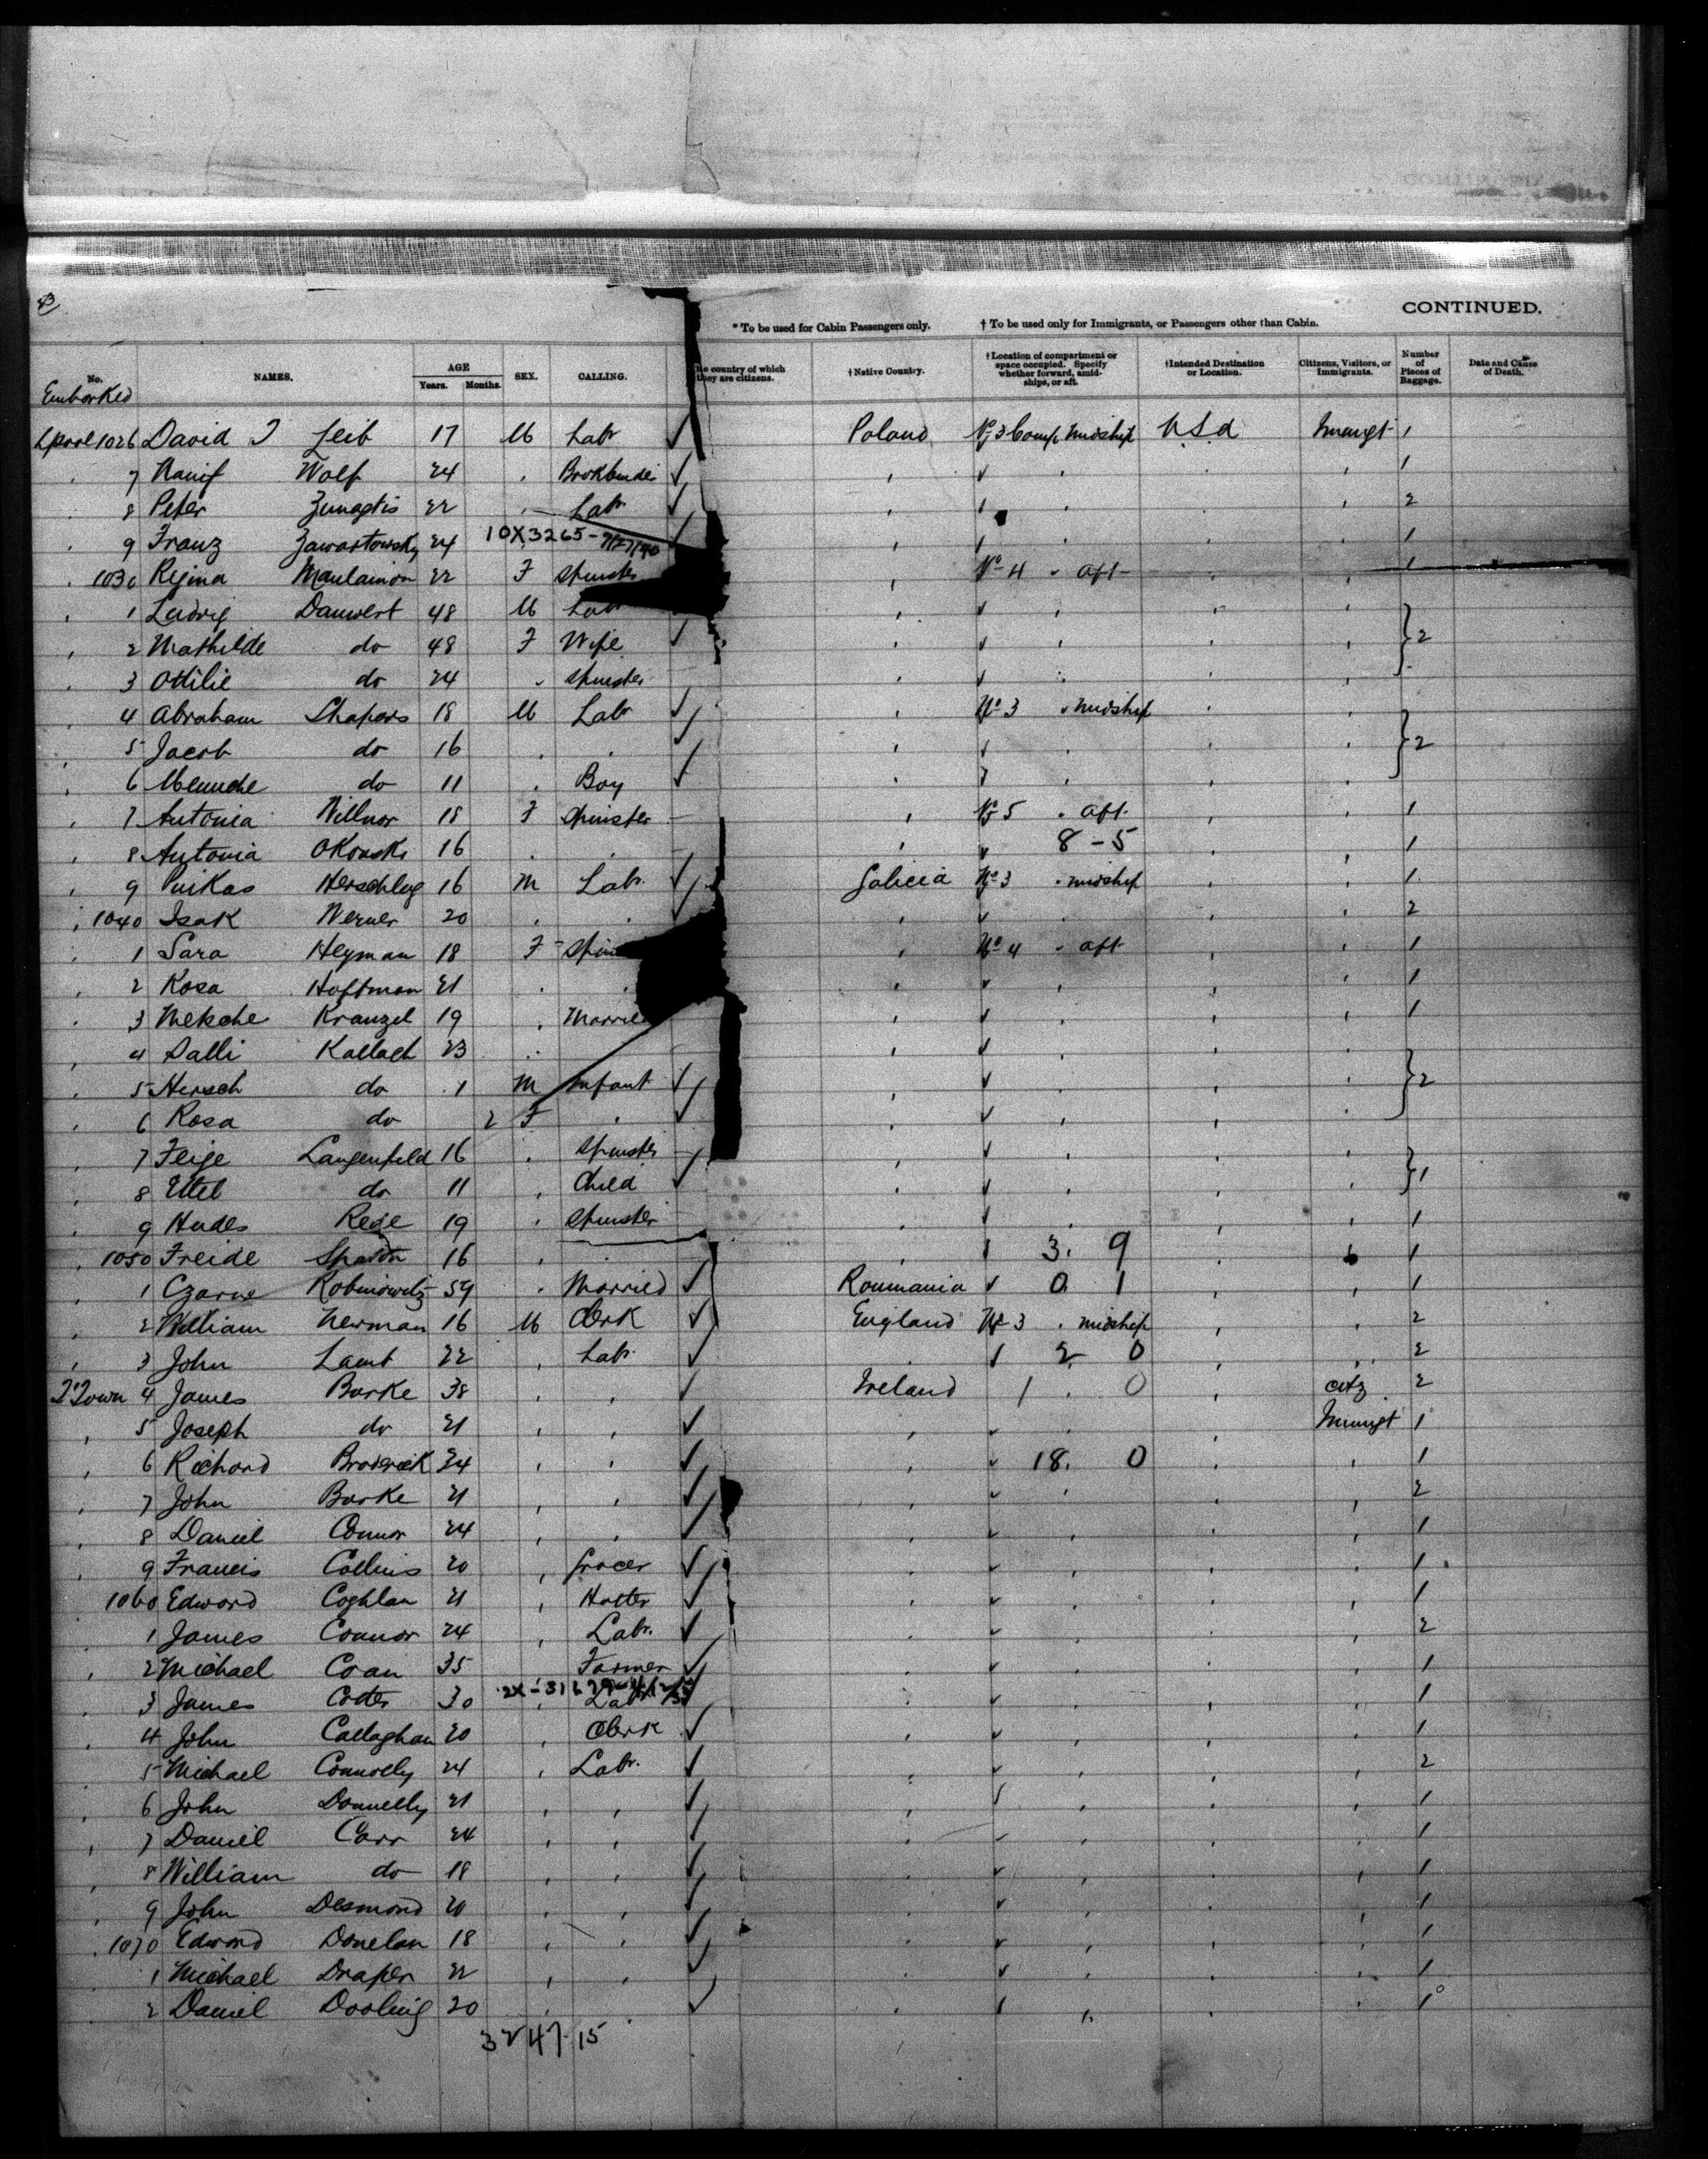 CONTINUED.
* To be used for Cabin Passengers only. † To be used only for Immigrants, or Passengers other than Cabin.
No. Embarked NAMES. AGE Years. Months. SEX. CALLING. The country of which they are citizens. †Native Country. †Location of compartment or space occupied. Specify whether forward, amidships, or aft. †Intended Destination or Location. Citizens, Visitors, or Immigrants. Number of Pieces of Baggage. Date and Cause of Death.
Lpool 1026 David J Leib 17 M Labr ✓ Poland No 3 Comp Midship U.S.A Immigt 1
7 Wolf 24 Bookbinder ✓ 1
8 Peter 22 Labr ✓ 2
9 Franz Zawartowsky 24 10X3265- ✓ 1
1030 Regina 22 F Spinster No 4 aft 1
1 Ludwig Dauwert 48 M Labr
2 Mathilde do 48 F Wife ✓ 2
3 Ottilie do 24 Spinster
4 Abraham Shapers 18 M Labr ✓ No 3 midship
5 Jacob do 16 ✓ 2
6 do 11 Boy ✓
7 Antonia Willnor 18 F Spinster No 5 aft 1
8 Antonia Okonski 16 8-5 1
9 Herschlug 16 M Labr ✓ Galicia No 3 midship 1
1040 Isak Werner 20 ✓ 2
1 Sara Heyman 18 F Spin No 4 aft 1
2 Rosa Hoffman 21 1
3 Kranzel 19 Married 1
4 Salli Kallach 23
5 Hersch do 1 M Infant ✓ 2
6 Rosa do 2 F ✓
7 Feige Langenfeld 16 Spinster
8 Ettel do 11 Child ✓ 1
9 Hudes 19 Spinster 1
1050 Freide 16 3. 9 1
1 Czarne Robinowitz 59 Married ✓ Roumania 0 1 1
2 William Newman 16 M Clerk ✓ England No 3 midship 2
3 John Lamb 22 Labr ✓ 1 2 0 2
Q'Town 4 James Burke 38 ✓ Ireland 1 0 citz 2
5 Joseph do 21 ✓ Immigt 1
6 Richard Broderick 24 ✓ 18. 0 1
7 John Burke 21 ✓ 2
8 Daniel Connor 24 ✓ 1
9 Francis Collins 20 Grocer ✓ 1
1060 Edward Coghlan 21 Hatter ✓ 1
1 James Connor 24 Labr. ✓ 2
2 Michael Coan 35 Farmer ✓ 1
3 James 30 Labr ✓ 1
4 John Callaghan 20 Clerk ✓ 1
5 Michael Connolly 24 Labr. ✓ 2
6 John Donnelly 21 ✓ 1
7 Daniel Carr 24 ✓ 1
8 William do 18 ✓ 1
9 John Desmond 20 ✓ 1
1070 Edward Donelan 18 ✓ 1
1 Michael Draper 22 ✓ 1
2 Daniel Dooling 20 ✓ 1
47.15